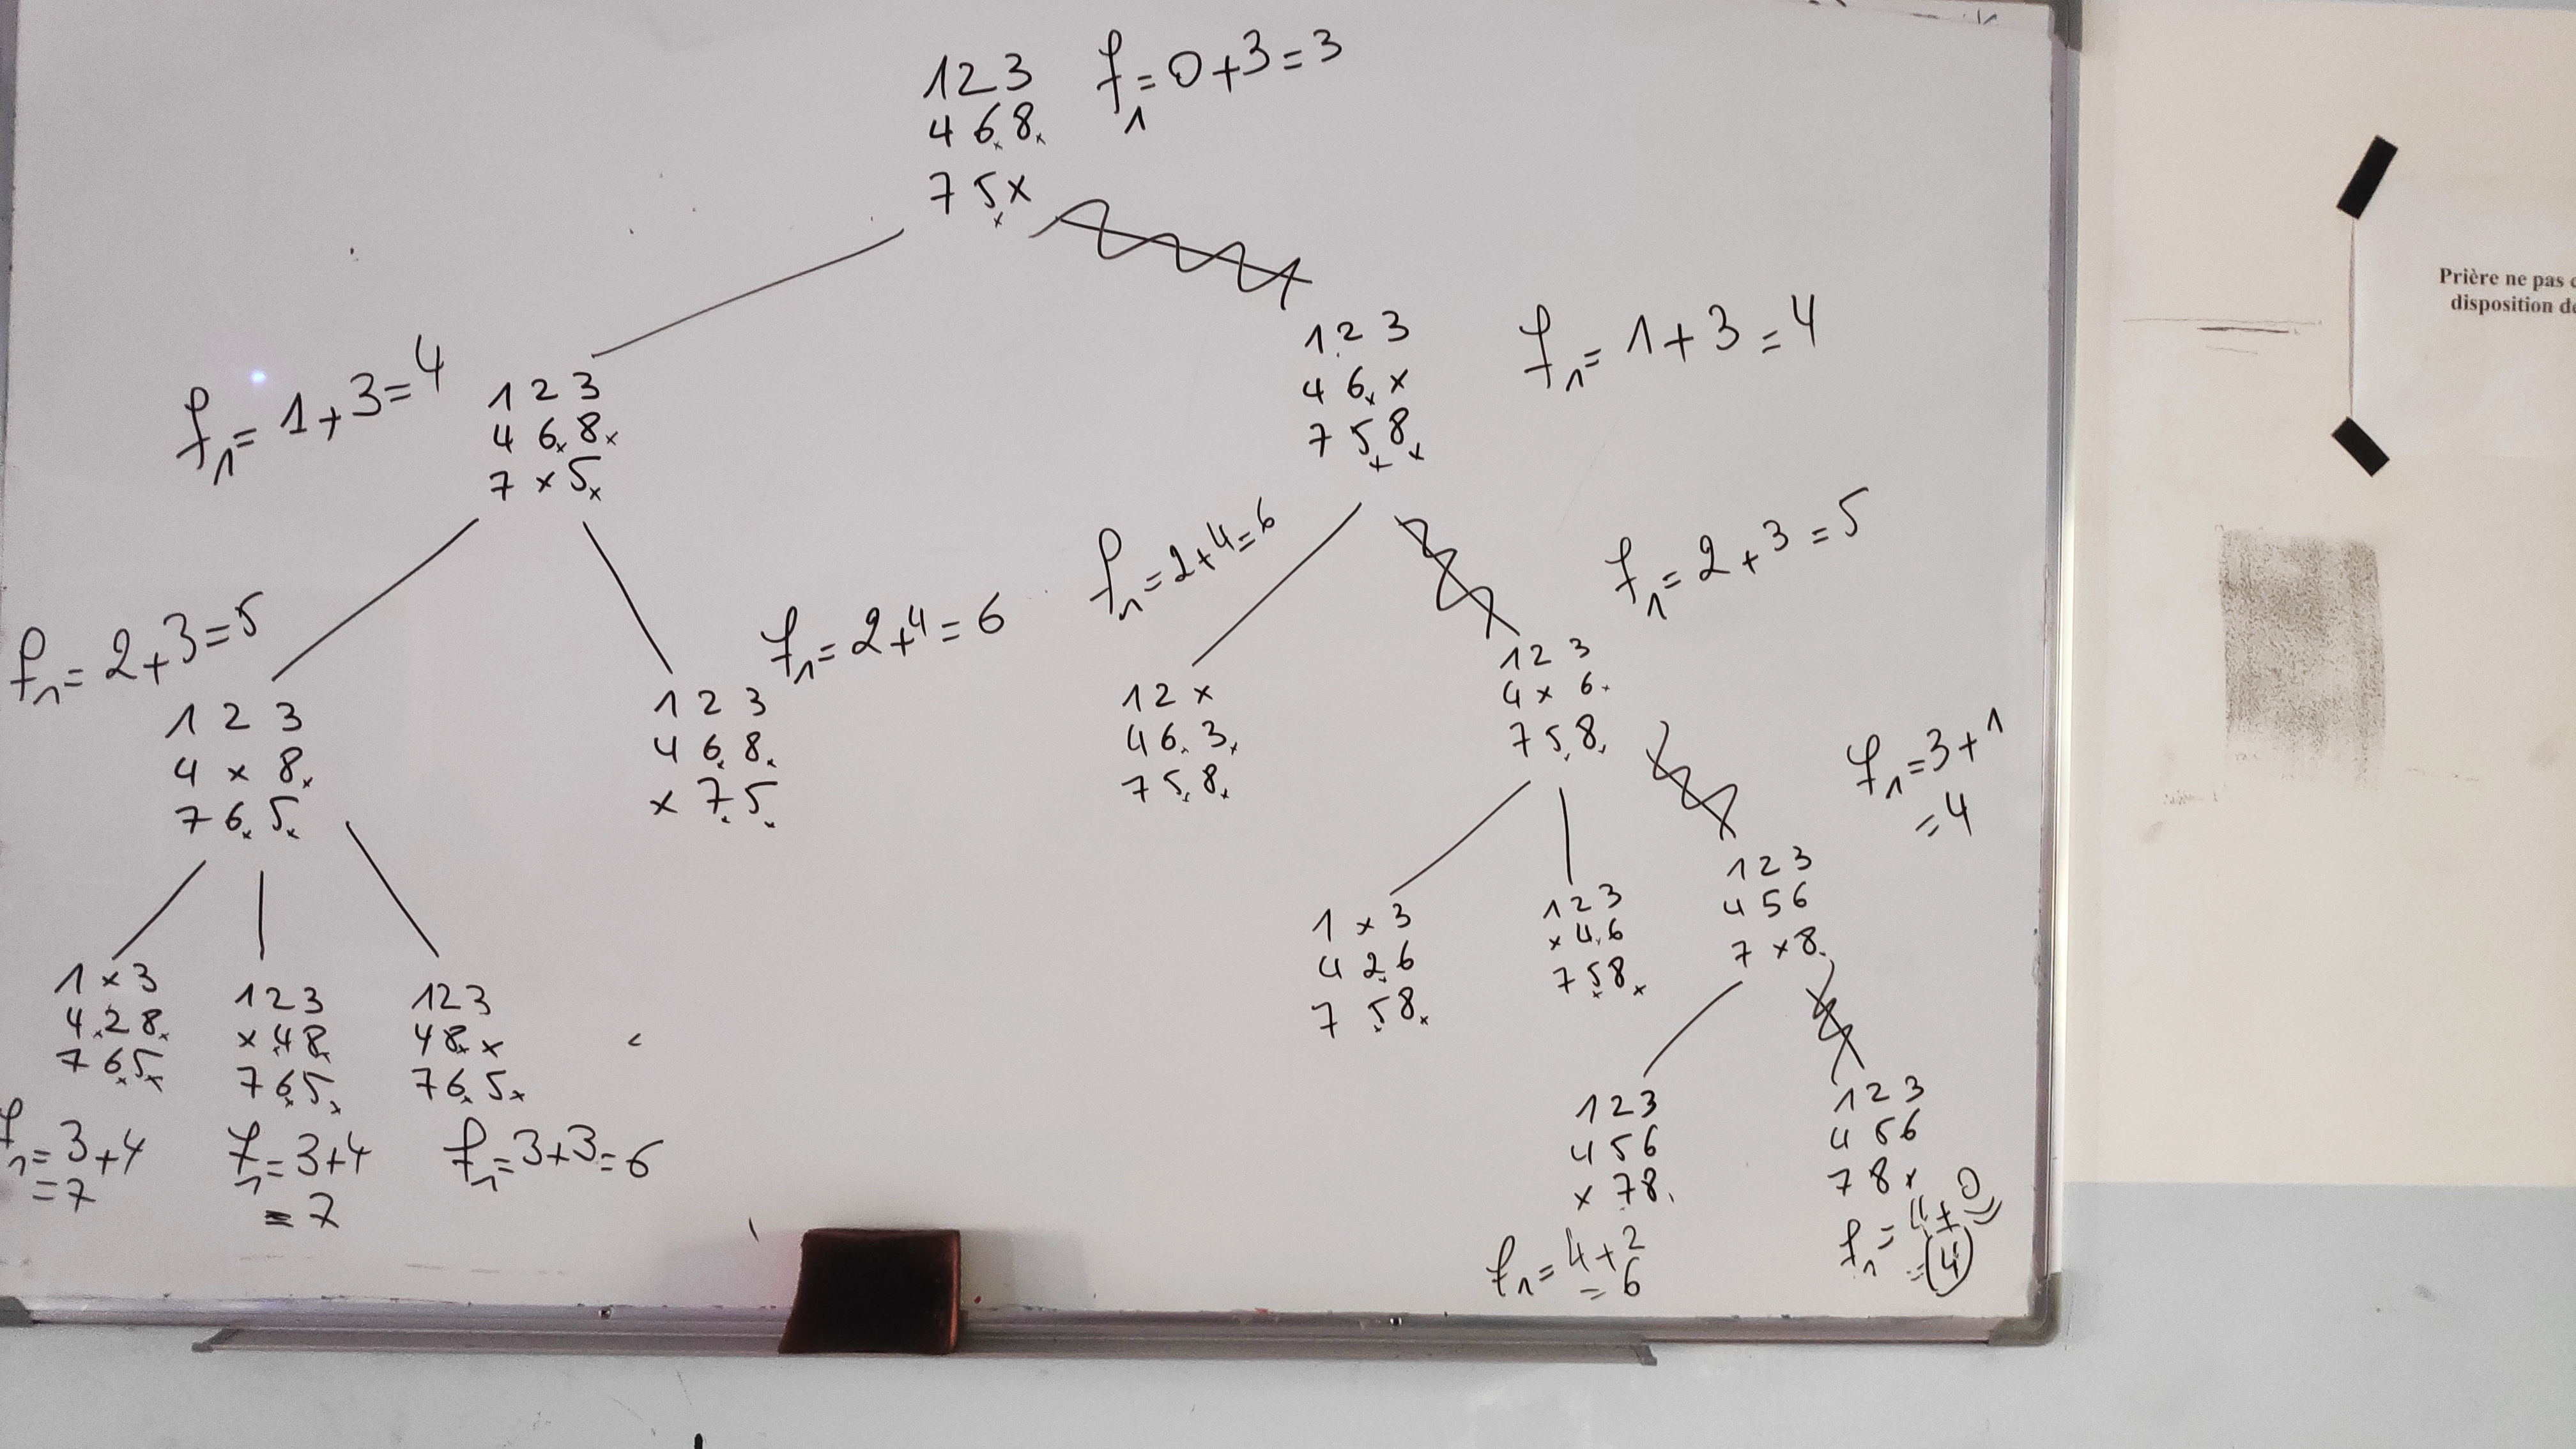 1 2 3
4 6 8
7 5 x
f1 = 0+3 = 3
f1 = 1+3 = 4
1 2 3
4 6 8
7 x 5
1 2 3
4 6 x
7 5 8
f1 = 1+3 = 4
f1 = 2+3 = 5
1 2 3
4 x 8
7 6 5
f1 = 2+4 = 6
1 2 3
4 6 8
x 7 5
f1 = 2+4 = 6
1 2 x
4 6 3
7 5 8
f1 = 2+3 = 5
1 2 3
4 x 6
7 5 8
1 x 3
4 2 8
7 6 5
f1 = 3+4
= 7
1 2 3
x 4 8
7 6 5
f1 = 3+4
= 7
1 2 3
4 8 x
7 6 5
f1 = 3+3 = 6
1 x 3
4 2 6
7 5 8
1 2 3
x 4 6
7 5 8
f1 = 3+1
= 4
1 2 3
4 5 6
7 x 8
1 2 3
4 5 6
x 7 8
f1 = 4+2
= 6
1 2 3
4 5 6
7 8 x
f1 = 4+0
= 4
Prière ne pas
disposition